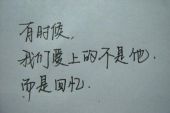 有时候，
我们爱上的不是他.
而是回忆.